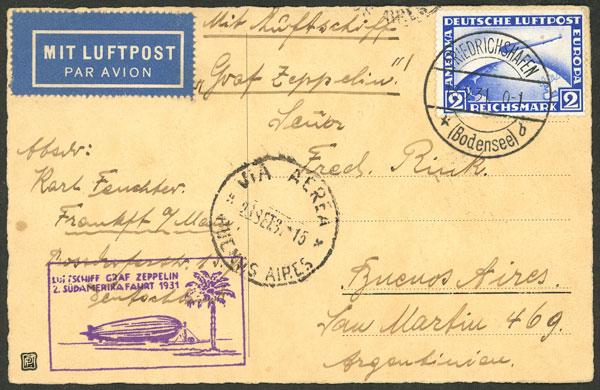 Mit Luftschiff
"Graf Zeppelin"!
MIT LUFTPOST
PAR AVION
DEUTSCHE LUFTPOST
EUROPA
AMERIKA
2 REICHSMARK 2
FRIEDRICHSHAFEN
31. 0-1
(Bodensee)
Señor
Fred. Rink.
Absdr:
Karl Feuchter
Frankft a/Main
Deutschl
VIA AEREA
SET.3
15
BUENOS AIRES
LUFTSCHIFF GRAF ZEPPELIN
2. SÜDAMERIKAFAHRT 1931
Buenos Aires.
San Martin 469.
Argentinien.